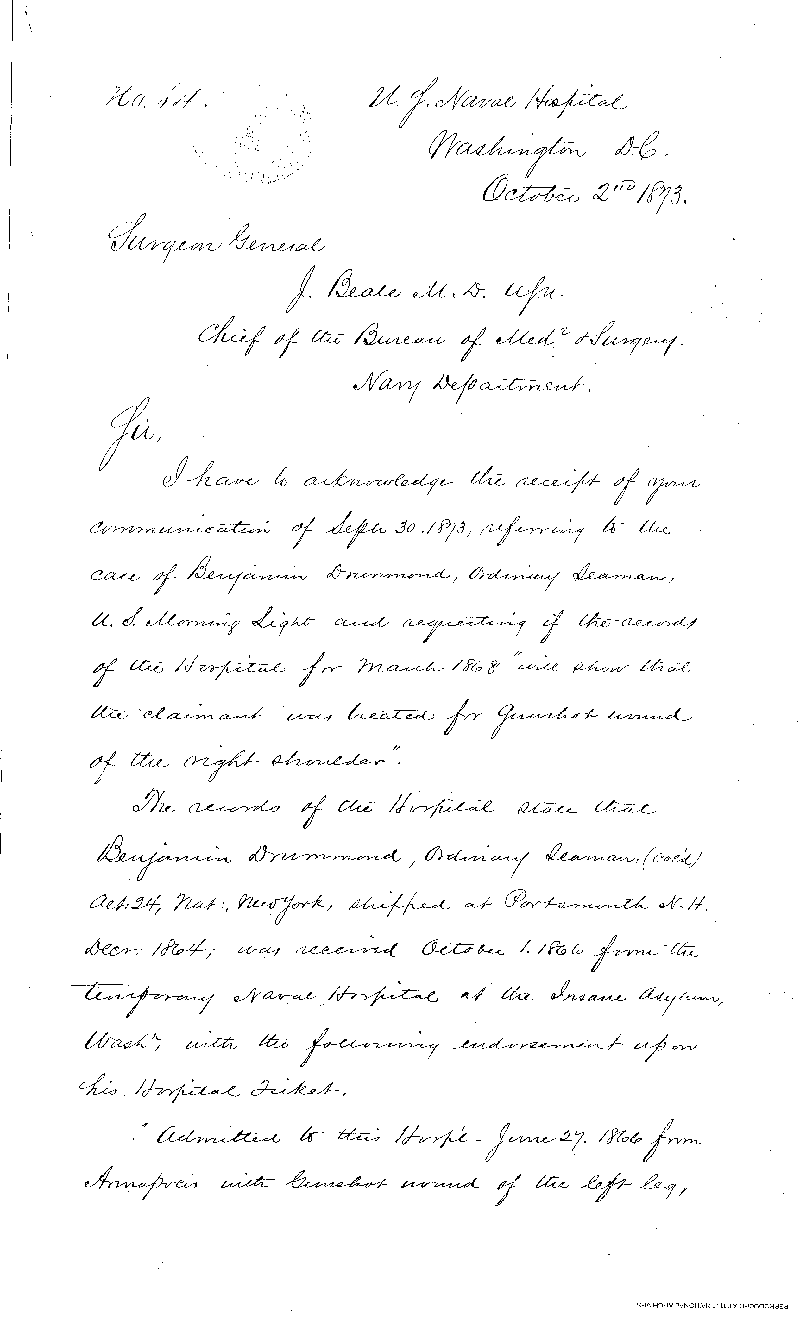 U. S. Naval Hospital
Washington D.C.
October 2nd 1873.
Surgeon General
J. Beale M.D. USN.
Chief of the Bureau of Med. & Surgery.
Navy Department.
Sir,
I have to acknowledge the receipt of your
communication of Septr 30. 1873, referring to the
case of Benjamin Drummond, Ordinary Seaman,
U. S. Morning Light and requesting if the records
of the Hospital for March 1868 "will show that
the claimant was treated for Gunshot wound
of the right shoulder".
The records of the Hospital state that
Benjamin Drummond, Ordinary Seaman, (col'd)
Aet: 24, Nat:, New York, shipped at Portsmouth N.H.
Decr. 1864; was received October 1. 1866 from the
temporary Naval Hospital at the Insane Asylum,
Washn, with the following endorsement upon
his Hospital Ticket.
"Admitted to this Hospl - June 27. 1866 from
Annapolis with Gunshot wound of the left leg,
REPRODUCED AT THE NATIONAL ARCHIVES